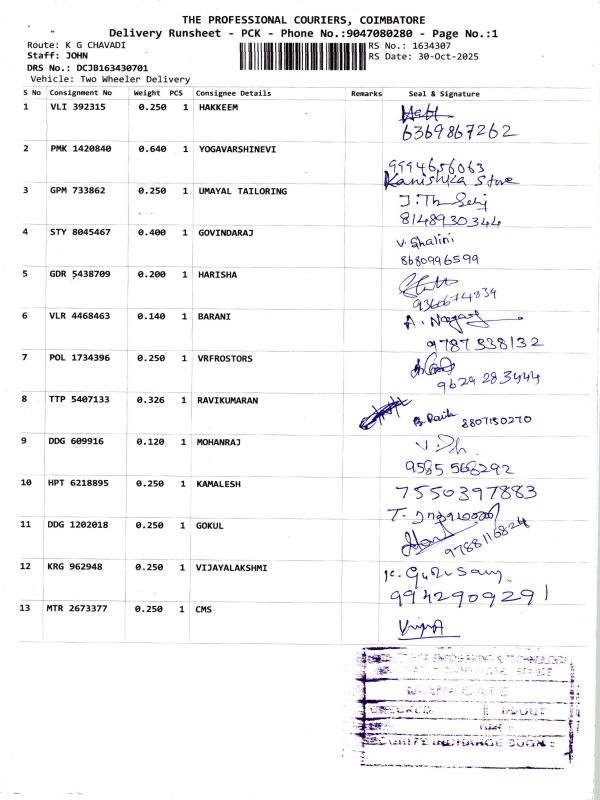 THE PROFESSIONAL COURIERS, COIMBATORE
Delivery Runsheet - PCK - Phone No.:9047080280 - Page No.:1
Route: K G CHAVADI
RS No.: 1634307
Staff: JOHN
RS Date: 30-Oct-2025
DRS No.: DCJB163430701
Vehicle: Two Wheeler Delivery
S No Consignment No Weight PCS Consignee Details Remarks Seal & Signature
1 VLI 392315 0.250 1 HAKKEEM
6369867262
2 PMK 1420840 0.640 1 YOGAVARSHINEVI
9994656063
Kanishka Store
3 GPM 733862 0.250 1 UMAYAL TAILORING
8148930344
4 STY 8045467 0.400 1 GOVINDARAJ V. Shalini
8680996599
5 GDR 5438709 0.200 1 HARISHA
9360674839
6 VLR 4468463 0.140 1 BARANI A. Nagaraj
9787538132
7 POL 1734396 0.250 1 VRFROSTORS
9629283444
8 TTP 5407133 0.326 1 RAVIKUMARAN
8807150270
9 DDG 609916 0.120 1 MOHANRAJ
9585568292
10 HPT 6218895 0.250 1 KAMALESH 7550397883
11 DDG 1202018 0.250 1 GOKUL
9788116824
12 KRG 962948 0.250 1 VIJAYALAKSHMI K. Guru Samy
9942909291
13 MTR 2673377 0.250 1 CMS